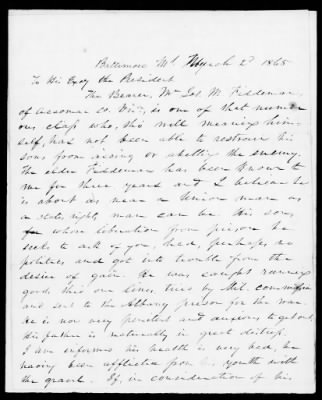 Baltimore Md. March 2d 1865
To His Excy the President
The Bearer, Mr Jas. M. Fiddeman,
of Accomac co. Virg, is one of that numer
ous class who, tho' well meaning him-
self, has not been able to restrain his
sons from aiding or abetting the enemy.
The elder Fiddeman has been known to
me for three years and I believe he
is about as near a Union man as
a states rights man can be. His son,
for whose liberation from prison he
seeks to ask of you, had, perhaps no
politics and got into trouble from the
desire of gain. He was caught running
goods thro' our lines, tried by Mil. commission
and sent to the Albany prison for the war.
He is now very penitent and anxious to get out
His father is naturally in great distress.
I am informed his health is very bad, he
having been afflicted from his youth with
the gravel. If, in consideration of his